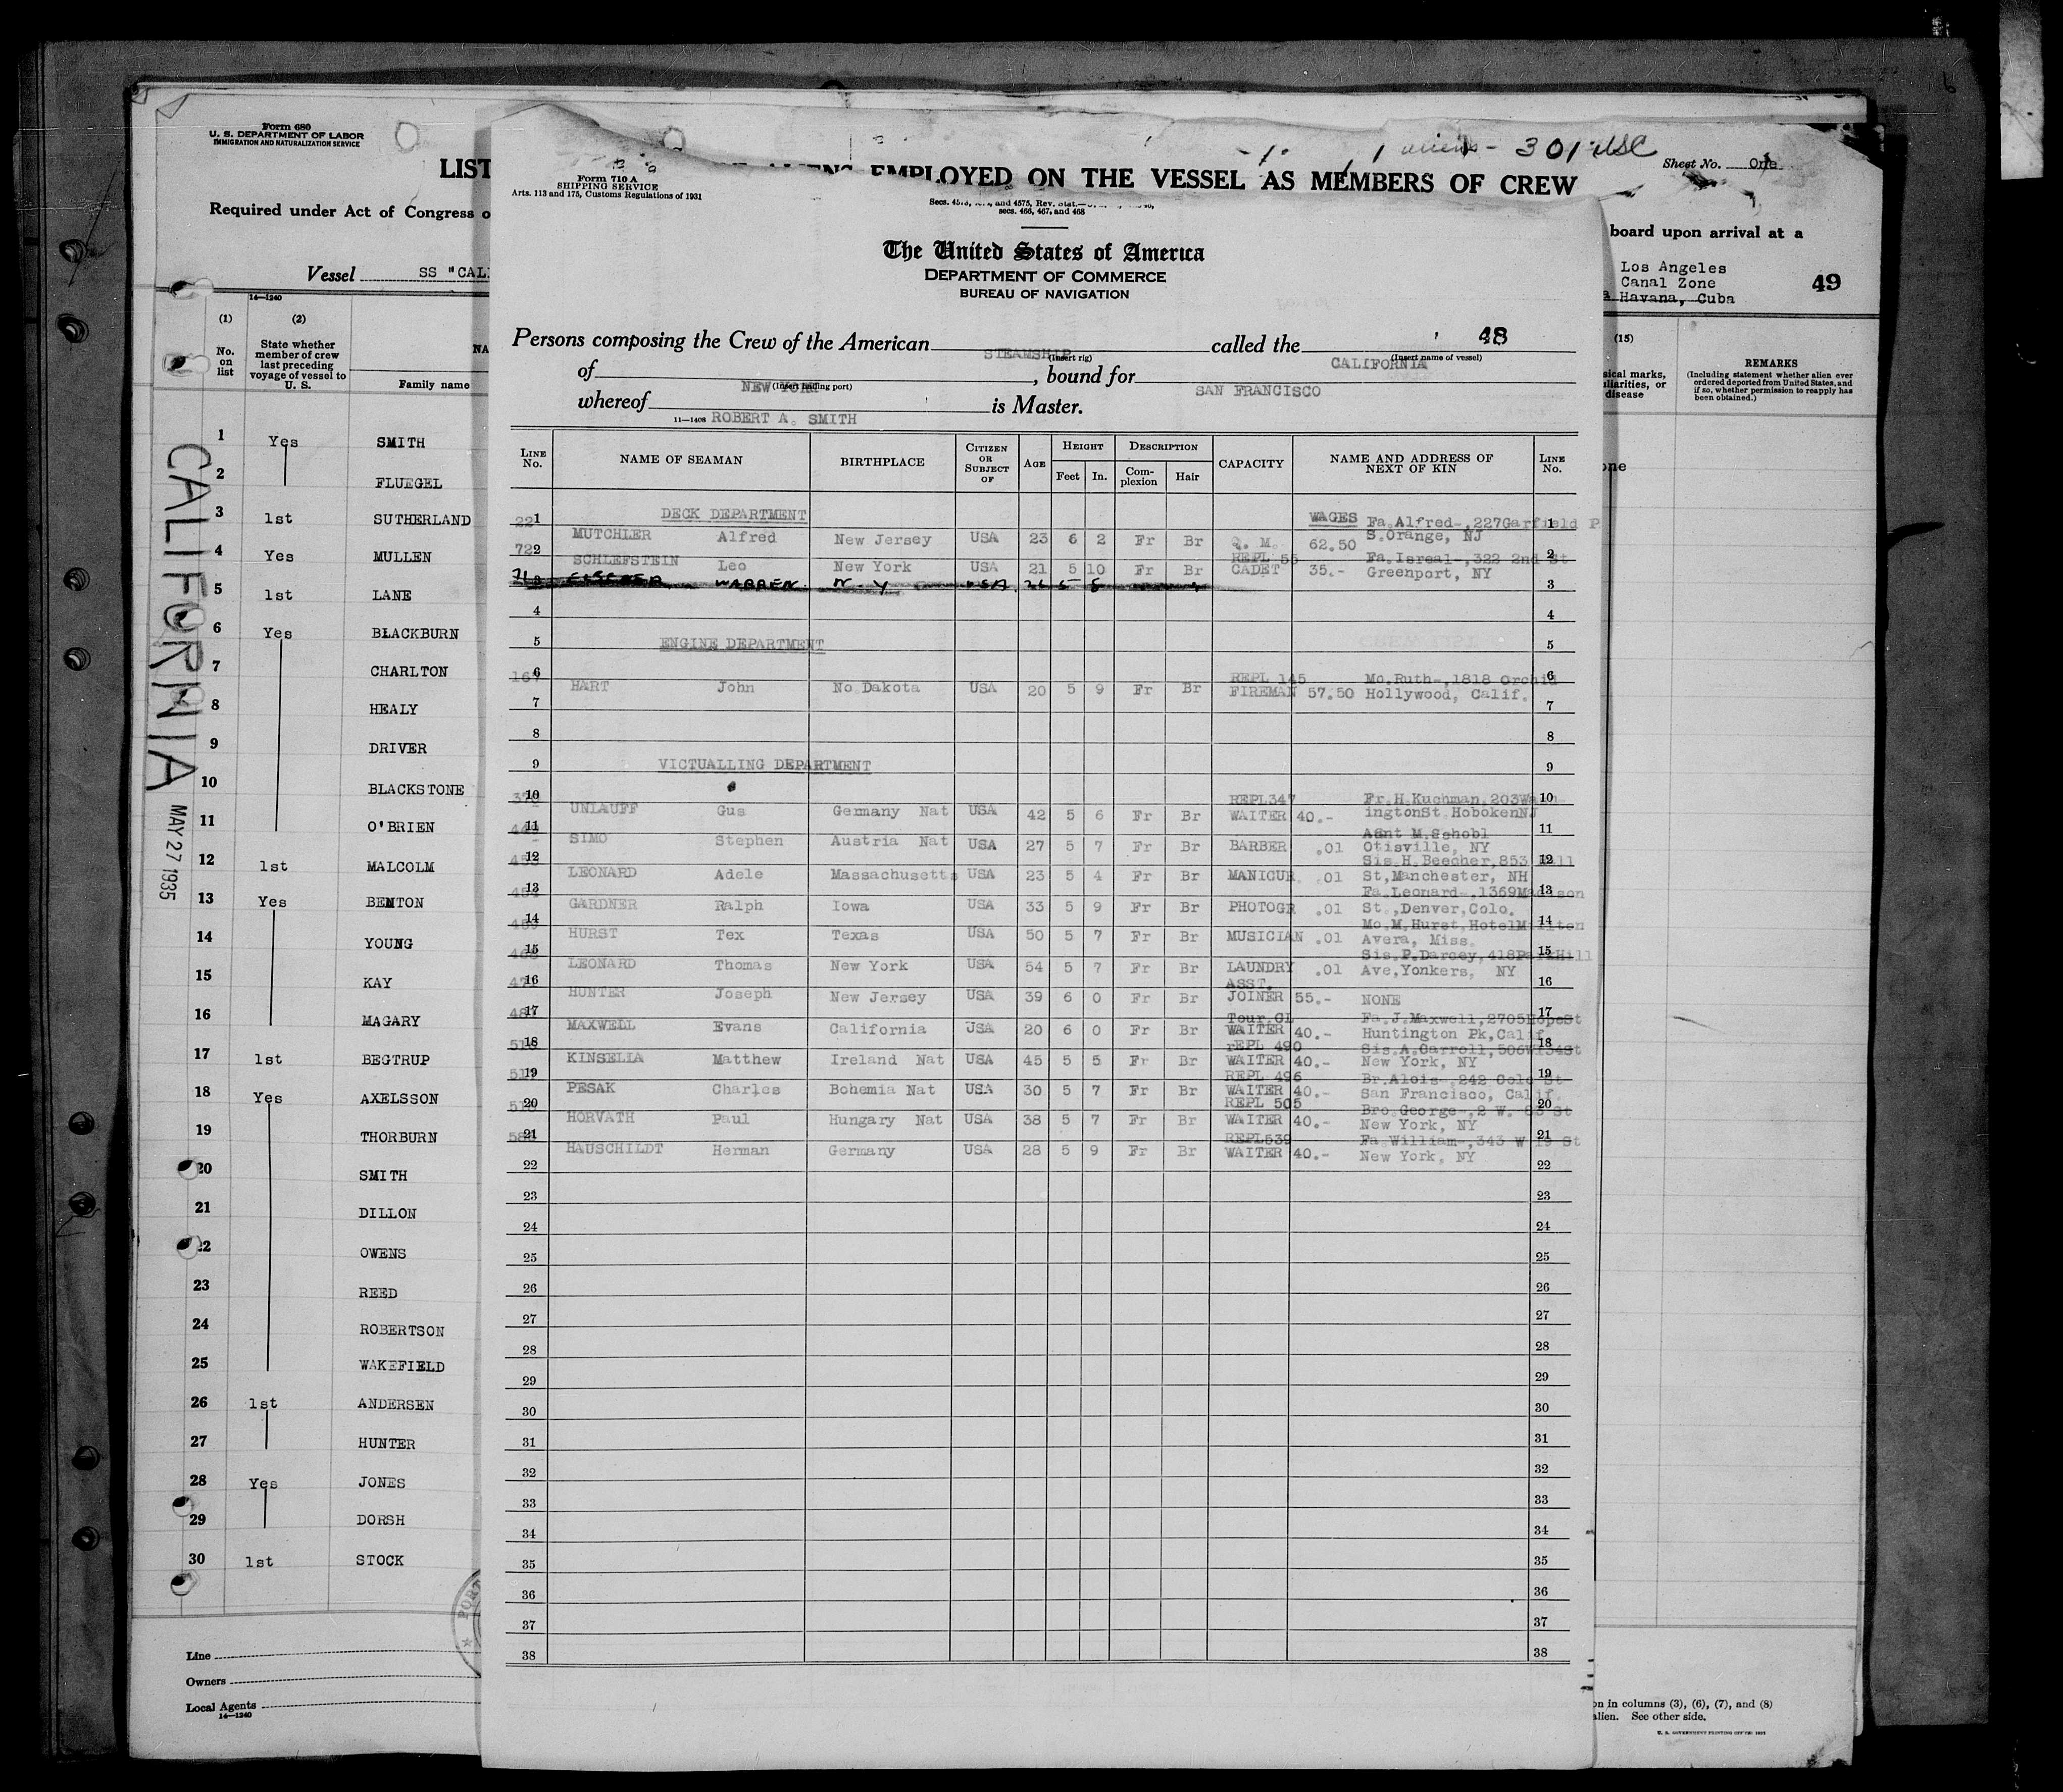 Form 680
U. S. DEPARTMENT OF LABOR
IMMIGRATION AND NATURALIZATION SERVICE
LIST
Required under Act of Congress o
Vessel SS "CALI
14—1240
(1) (2)
No. on list
State whether member of crew last preceding voyage of vessel to U. S.
NA
Family name
1 Yes SMITH
2 FLUEGEL
3 1st SUTHERLAND
4 Yes MULLEN
5 1st LANE
6 Yes BLACKBURN
7 CHARLTON
8 HEALY
9 DRIVER
10 BLACKSTONE
11 O'BRIEN
12 1st MALCOLM
13 Yes BENTON
14 YOUNG
15 KAY
16 MAGARY
17 1st BEGTRUP
18 Yes AXELSSON
19 THORBURN
20 SMITH
21 DILLON
22 OWENS
23 REED
24 ROBERTSON
25 WAKEFIELD
26 1st ANDERSEN
27 HUNTER
28 Yes JONES
29 DORSH
30 1st STOCK
Line
Owners
Local Agents
14—1240
CALIFORNIA
MAY 27 1935
PORT
301 USC
EMPLOYED ON THE VESSEL AS MEMBERS OF CREW
Sheet No. One
Form 710 A
SHIPPING SERVICE
Arts. 113 and 175, Customs Regulations of 1931
and 4575, Rev. Stat.
secs. 466, 467, and 468
The United States of America
DEPARTMENT OF COMMERCE
BUREAU OF NAVIGATION
48
Persons composing the Crew of the American STEAMSHIP called the CALIFORNIA
(Insert rig) (Insert name of vessel)
of NEW YORK, bound for SAN FRANCISCO
(Insert hailing port)
whereof ROBERT A. SMITH is Master.
11—1408
LINE No. NAME OF SEAMAN BIRTHPLACE CITIZEN OR SUBJECT OF AGE HEIGHT Feet In. DESCRIPTION Complexion Hair CAPACITY NAME AND ADDRESS OF NEXT OF KIN LINE No.
1 DECK DEPARTMENT WAGES Fa.Alfred-,227Garfield P 1
MUTCHLER Alfred New Jersey USA 23 6 2 Fr Br Q. M. 62.50 S.Orange, NJ
2 REPL 55 Fa.Isreal-,322 2nd St 2
SCHLEFSTEIN Leo New York USA 21 5 10 Fr Br CADET 35.- Greenport, NY
3 WARREN N.Y USA 3
4 4
5 ENGINE DEPARTMENT 5
6 REPL 145 Mo.Ruth-,1818 Orchid 6
HART John No.Dakota USA 20 5 9 Fr Br FIREMAN 57.50 Hollywood, Calif.
7 7
8 8
9 VICTUALLING DEPARTMENT 9
10 REPL347 Fr.H.Kuchman,203Wa 10
UNLAUFF Gus Germany Nat USA 42 5 6 Fr Br WAITER 40.- ingtonSt HobokenNJ
11 Aunt M.Schobl 11
SIMO Stephen Austria Nat USA 27 5 7 Fr Br BARBER .01 Otisville, NY
12 Sis.H.Beecher,853 12
LEONARD Adele Massachusetts USA 23 5 4 Fr Br MANICUR .01 St,Manchester, NH
13 Fa.Leonard-,1369Madison 13
GARDNER Ralph Iowa USA 33 5 9 Fr Br PHOTOGR .01 St.,Denver,Colo.
14 Mo.M.Hurst,Hotel 14
HURST Tex Texas USA 50 5 7 Fr Br MUSICIAN .01 Avera, Miss.
15 Sis.P.Darcey,418 15
LEONARD Thomas New York USA 54 5 7 Fr Br LAUNDRY .01 Ave,Yonkers, NY
16 ASST. 16
HUNTER Joseph New Jersey USA 39 6 0 Fr Br JOINER 55.- NONE
17 Tour.Cl Fa.J.Maxwell,2705HopeSt 17
MAXWELL Evans California USA 20 6 0 Fr Br WAITER 40.- Huntington Pk,Calif
18 rEPL 490 Sis.A.Carroll,506W134St 18
KINSELLA Matthew Ireland Nat USA 45 5 5 Fr Br WAITER 40.- New York, NY
19 REPL 496 Br.Alois-,242 Cold St 19
PESAK Charles Bohemia Nat USA 30 5 7 Fr Br WAITER 40.- San Francisco, Calif.
20 REPL 505 Bro.George-,2 W. St 20
HORVATH Paul Hungary Nat USA 38 5 7 Fr Br WAITER 40.- New York, NY
21 REPL539 Fa.William-,343 W 19 St 21
HAUSCHILDT Herman Germany USA 28 5 9 Fr Br WAITER 40.- New York, NY
22 22
23 23
24 24
25 25
26 26
27 27
28 28
29 29
30 30
31 31
32 32
33 33
34 34
35 35
36 36
37 37
38 38
board upon arrival at a
Los Angeles
Canal Zone
Havana, Cuba
49
(15)
sical marks, uliarities, or disease
REMARKS
(Including statement whether alien ever ordered deported from United States, and if so, whether permission to reapply has been obtained.)
one
on in columns (3), (6), (7), and (8)
alien. See other side.
U. S. GOVERNMENT PRINTING OFFICE